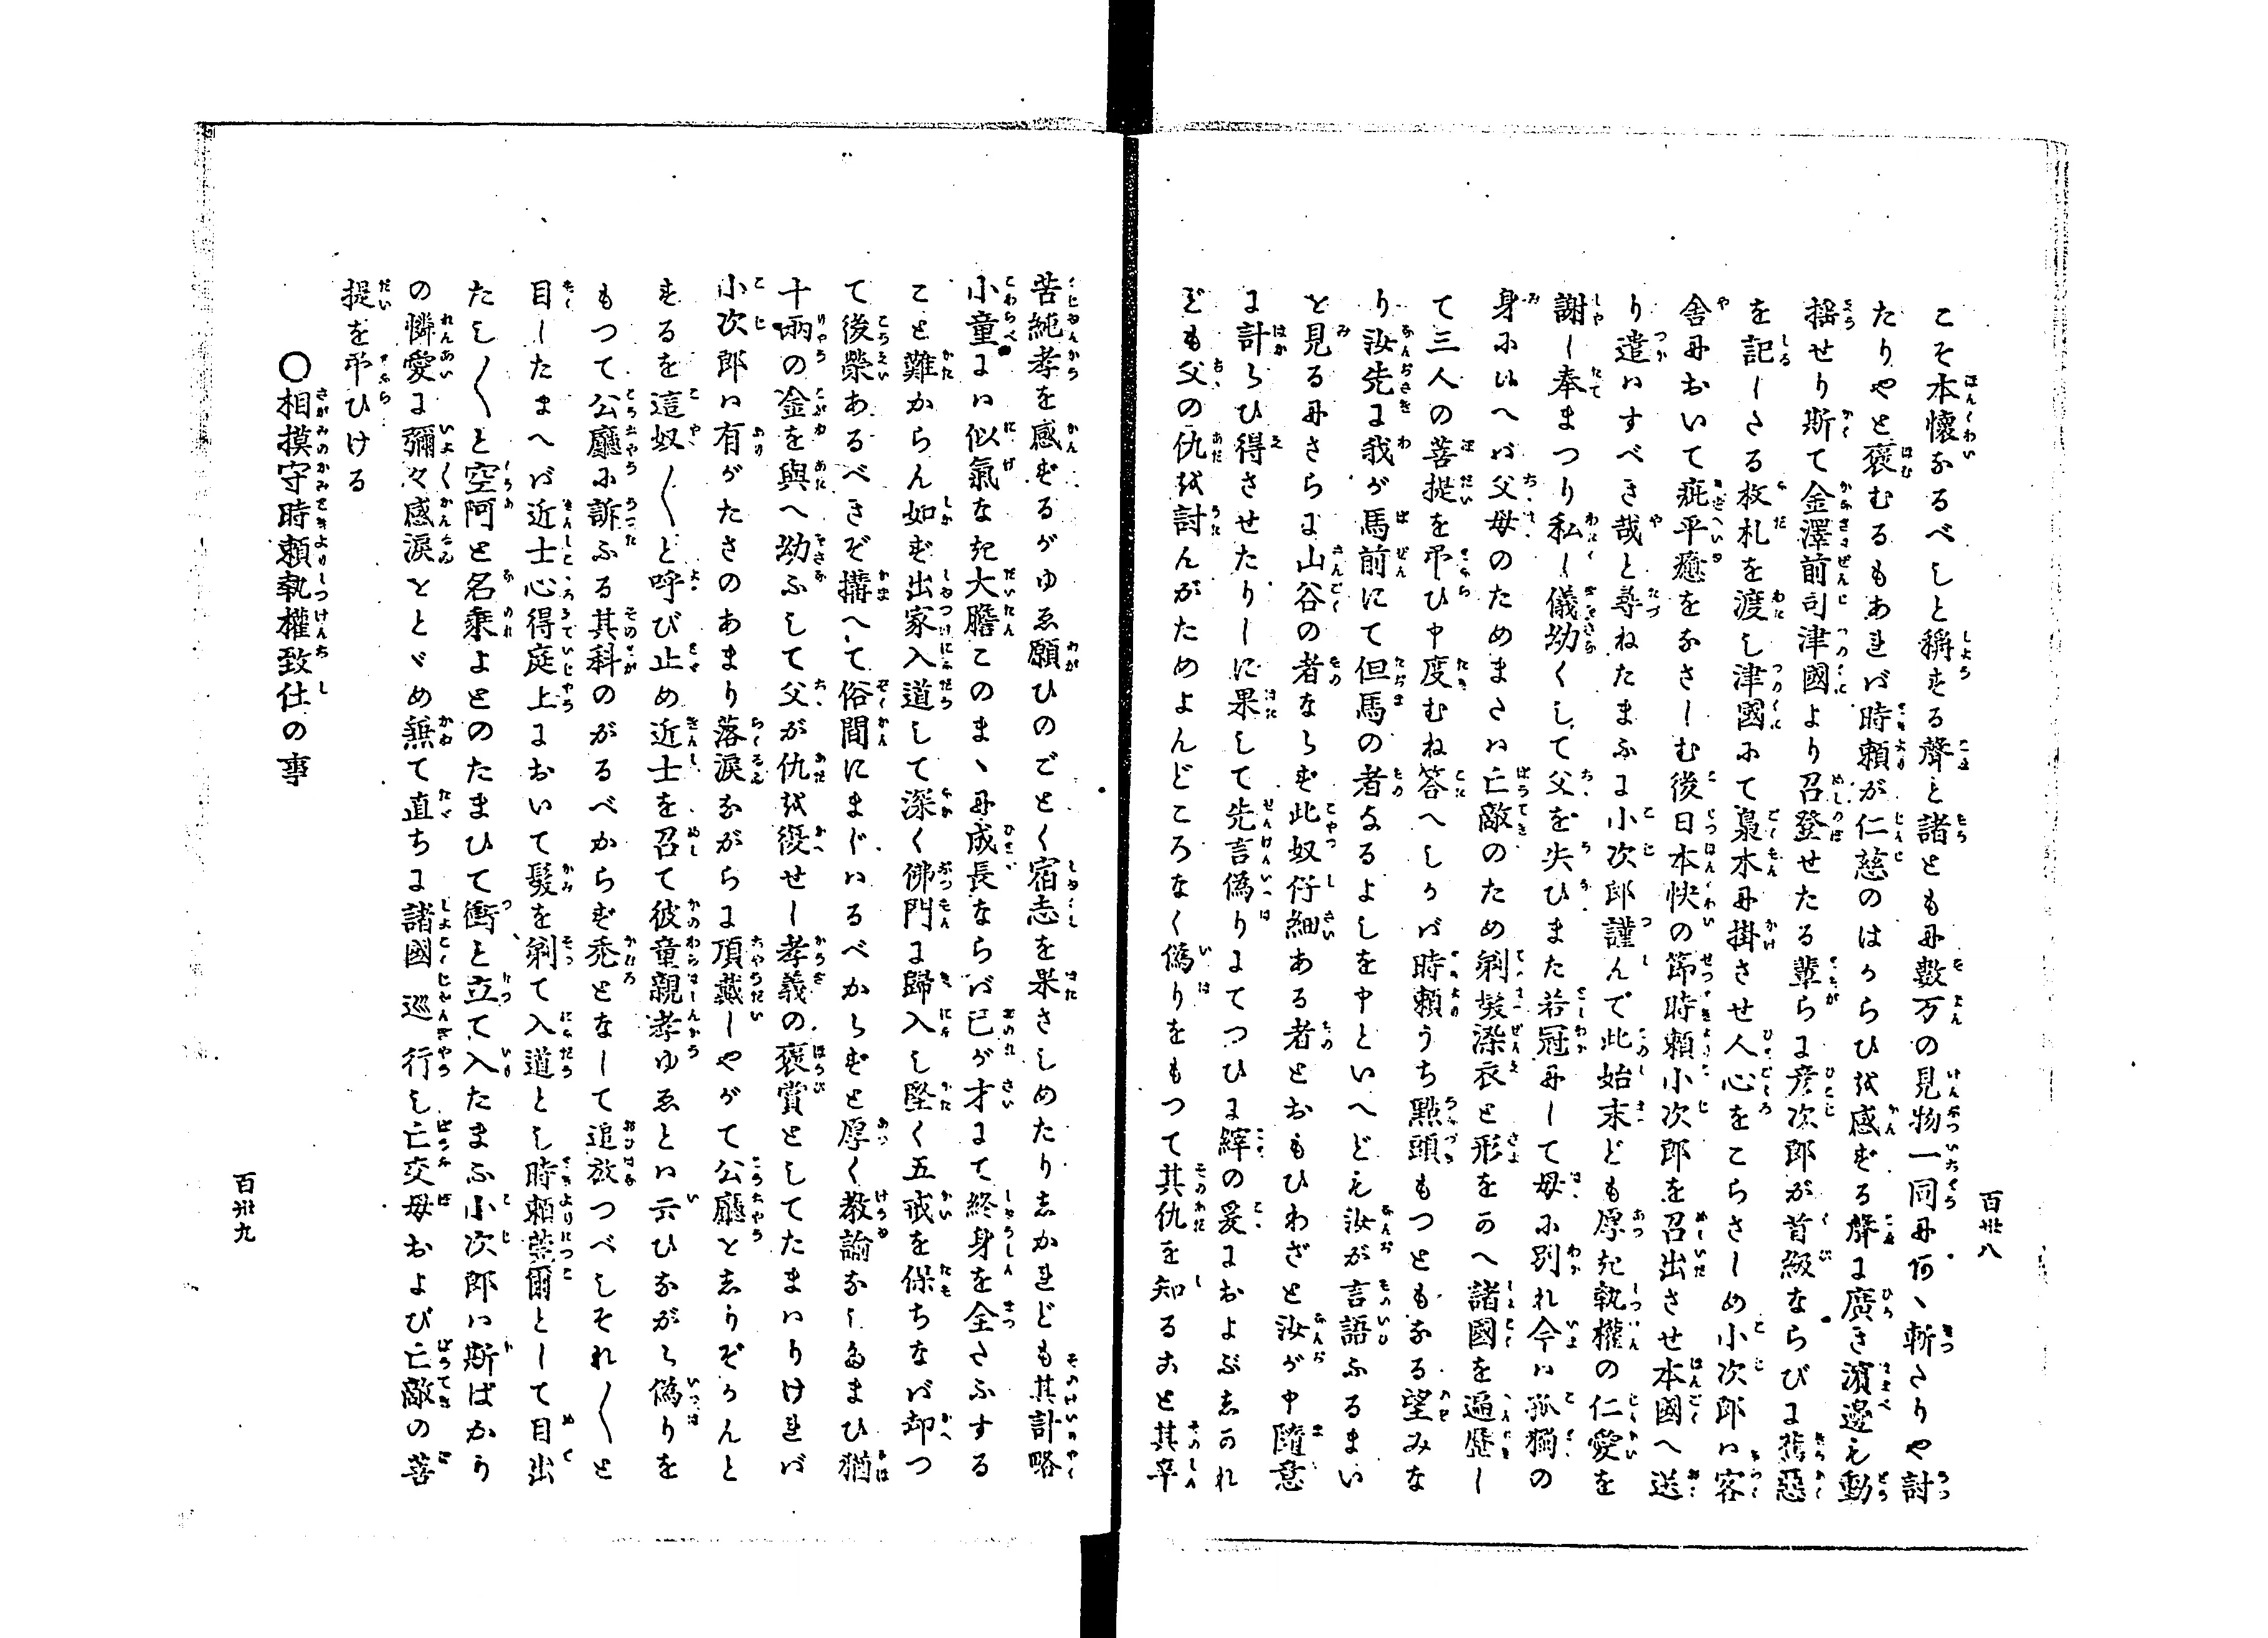 百卅八
こそ本懷なるべしと稱する聲と諸ともに数万の見物一同に阿ヽ斬さりや討
たりやと褒むるもあれば時頼が仁慈のはからひを感ずる聲に廣き濱邊も動
搖せり斯て金澤前司津國より召登せたる輩らに彦次郎が首級ならびに舊惡
を記しさる枚札を渡し津國にて梟木に掛させ人心をこらさしめ小次郎は客
舎において疵平癒をなさしむ後日本快の節時頼小次郎を召出させ本國へ送
り遣はすべき哉と尋ねたまふに小次郎謹んで此始末ども厚き執權の仁愛を
謝し奉まつり私し儀幼くして父を失ひまた若冠にして母に別れ今は孤獨の
身に候へば父母のためまさは亡敵のため剃髮染衣と形をかへ諸國を遍歴し
て三人の菩提を弔ひ申度むね答へしかば時頼うち點頭もつともなる望みな
り汝先に我が馬前にて但馬の者なるよしを申といへども汝が言語ふるまい
を見るにさらに山谷の者ならず此奴仔細ある者とおもひわざと汝が申隨意
に計らひ得させたりしに果して先言僞りにてつひに縡の爰におよぶしかれ
ども父の仇を討んがためよんどころなく僞りをもつて其仇を知ること其辛
苦純孝を感ずるがゆゑ願ひのごとく宿志を果さしめたりしかれども其計略
小童には似氣なき大膽このまヽに成長ならば已が才にて終身を全さふする
こと難からん如ず出家入道して深く佛門に歸入し堅く五戒を保ちなば却つ
て後榮あるべきぞ搆へて俗間にまじはるべからずと厚く教諭なしたまひ猶
十兩の金を與へ幼ふして父が仇を復せし孝義の褒賞としてたまはりければ
小次郎は有がたさのあまり落涙ながらに頂戴しやがて公廳をしりぞかんと
するを這奴〱と呼び止め近士を召て彼童親孝ゆゑとは云ひながら僞りを
もつて公廳に訴ふる其科のがるべからず禿となして追放つべしそれ〱と
目したまへば近士心得庭上において髮を剃て入道とし時頼莞爾として目出
たし〱と空阿と名乘よとのたまひて衝と立て入たまふ小次郎は斯ばかり
の憐愛に彌々感涙をとヾめ兼て直ちに諸國巡行し亡父母および亡敵の菩
提を弔ひける
〇相摸守時頼執權致仕の事
百卅九